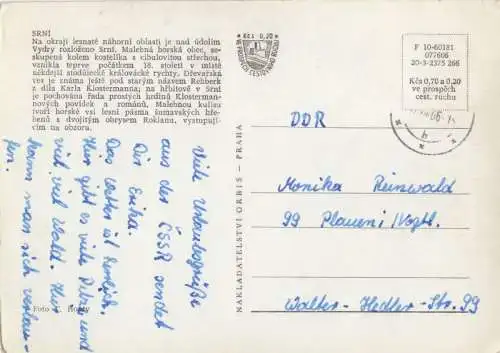 SRNÍ
Na okraji lesnaté náhorní oblasti je nad údolím
Vydry rozloženo Srní. Malebná horská obec, se-
skupená kolem kostelíka s cibulovitou střechou,
vznikla teprve počátkem 18. století v místě
někdejší stodůlecké královácké rychty. Dřevařská
ves je známa ještě pod starým názvem Rehberk
z díla Karla Klostermanna; na hřbitově v Srní
je pochována řada prostých hrdinů Klosterman-
nových povídek a románů. Malebnou kulisu
tvoří horské vsi lesní pásma šumavských hřbe-
nů s dvojitým obrysem Roklanu, vystupují-
cím na obzoru.
Kčs 0,20
VE PROSPĚCH CESTOVNÍHO RUCHU
F 10-60181
077606
20-3-2375 266
Kčs 0,70 a 0,20
ve prospěch
cest. ruchu
Viele Urlaubsgrüße
aus der ČSSR sendet
Dir Erika.
Das Wetter ist herrlich.
Hier gibt es viele Pilze und
viel, viel Wald. Hier
kann man sich verlau-
fen.
Foto
NAKLADATELSTVÍ ORBIS - PRAHA
DDR
Monika Reinwald
99 Plauen i/Vogtl.
Walter-Hedler-Str. 99